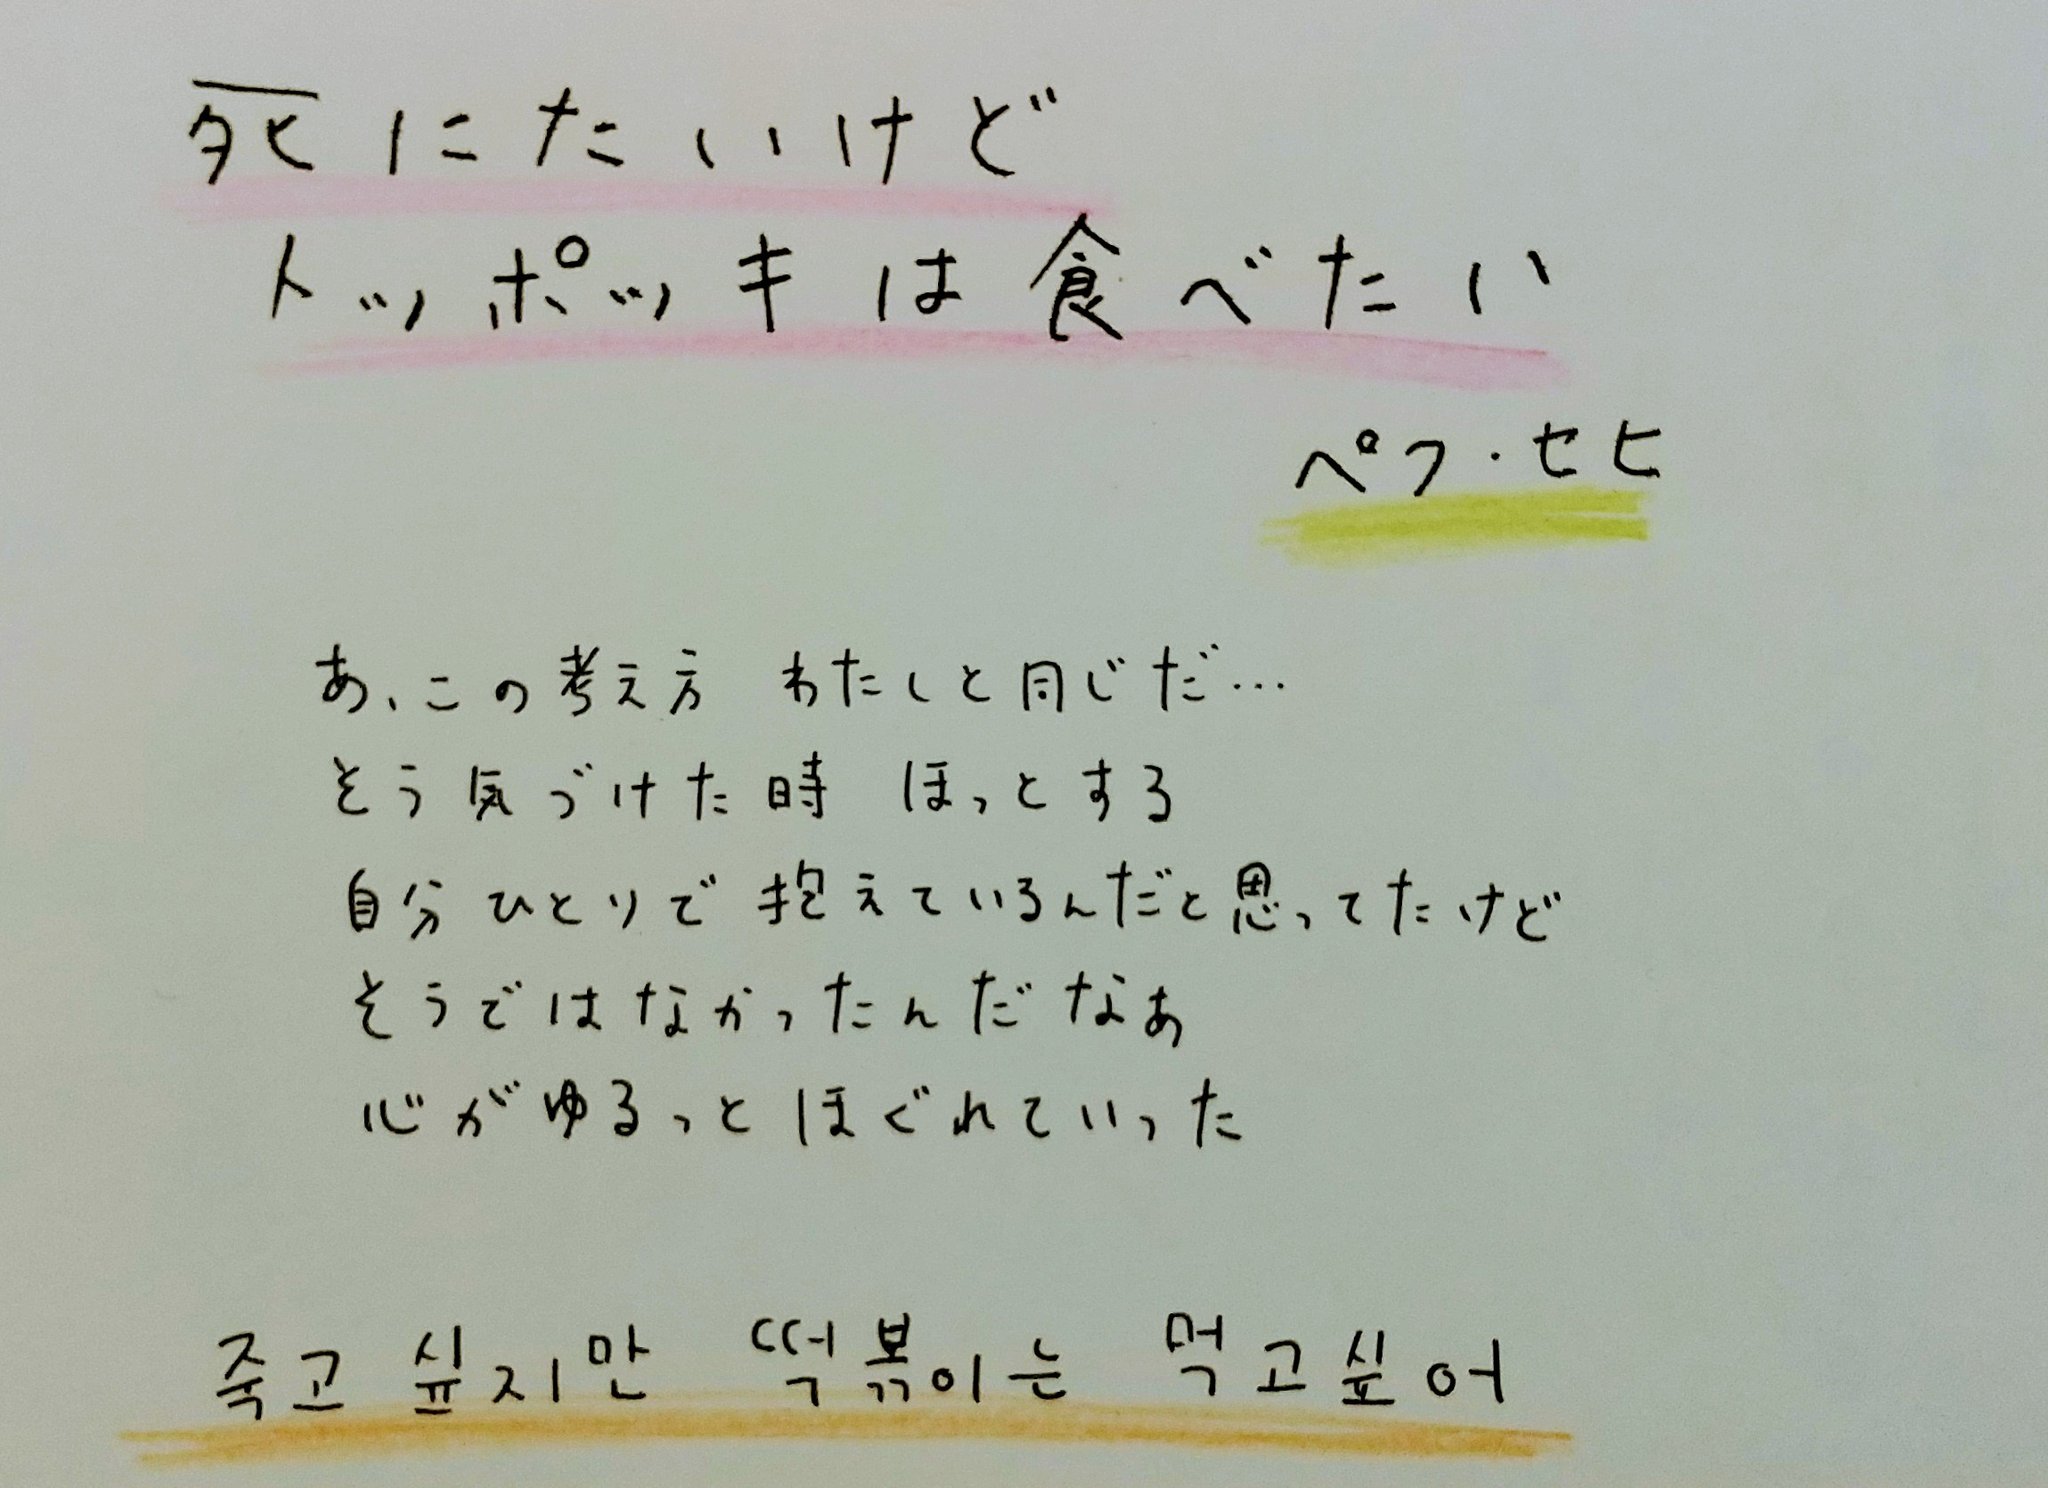 死にたいけど
トッポッキは食べたい
ペク・セヒ
あ、この考え方 わたしと同じだ…
そう気づけた時 ほっとする
自分ひとりで抱えているんだと思ってたけど
そうではなかったんだなあ
心がゆるっとほぐれていった
죽고 싶지만 떡볶이는 먹고싶어